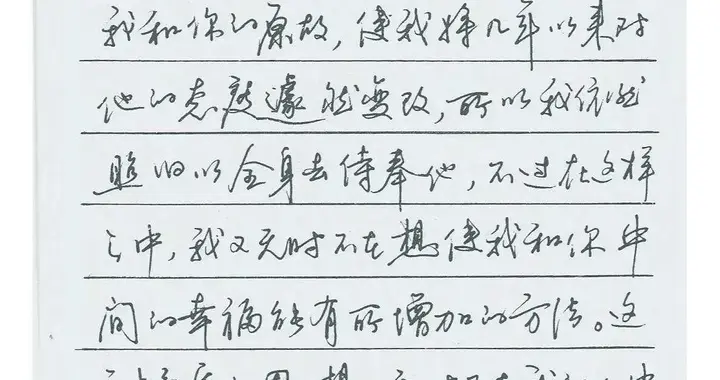 我和你的原故，使我将几年以来对
他的态度遽然变改，所以我依然
照旧以全身去侍奉他，不过在这样
之中，我又无时不在想使我和你中
间的幸福能有所增加的方法。这